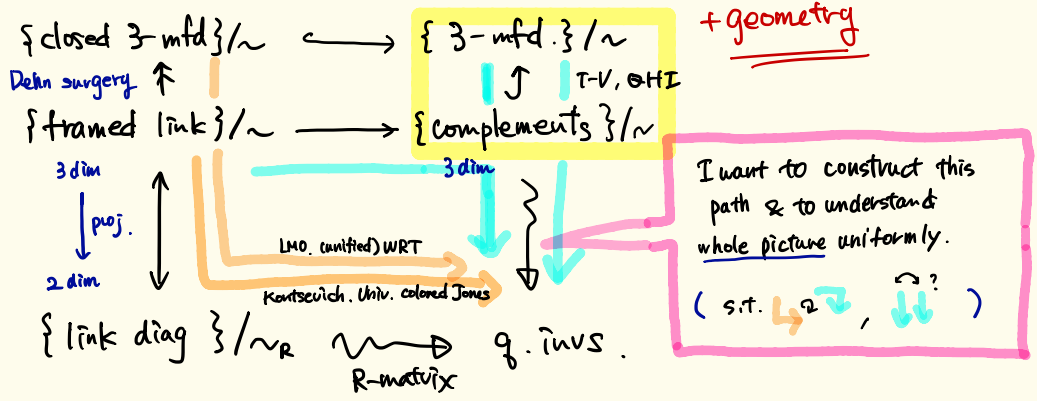 +geometry
{closed 3-mfd}/~ ⟷ { 3-mfd.}/~
Dehn surgery
T-V, QHI
{framed link}/~ ⟶ {complements}/~
3 dim
3 dim
proj.
2 dim
LMO. (unified) WRT
Kontsevich. Univ. colored Jones
{ link diag }/~R
R-matrix
q. invs.
I want to construct this
path & to understand
whole picture uniformly.
( s.t. & , ? )